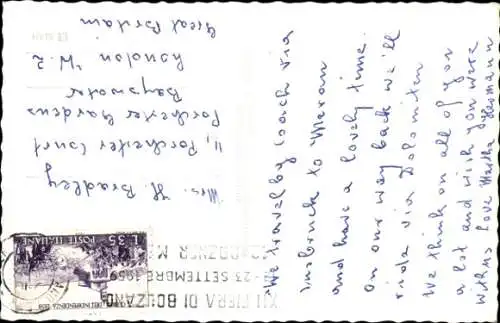 We travel by coach via
Insbruck to Meran
and have a lovely time.
on our way back we'll
ride via Dolomiten
We think on all of you
a lot and wish you were
with us love Martha Hermann
Mrs. H. Bradley
11, Porchester Court
Porchester Gardens
Bayswater
London W.2
Great Britain
POSTE ITALIANE
L.35
XII FIERA DI BOLZANO
- 23 SETTEMBRE 1959
BOZNER M